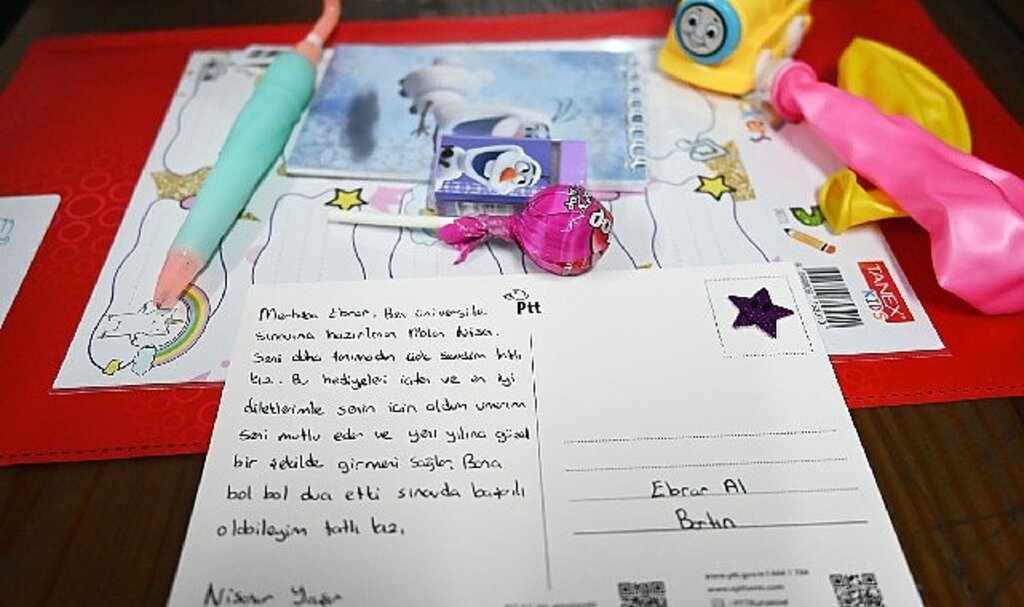 Ptt
Merhaba Ebrar. Ben üniversite
sınavına hazırlanan Ablan Nisa.
Seni daha tanımadan çok sevdim tatlı
kız. Bu hediyeleri içten ve en iyi
dileklerimle senin için aldım umarım
seni mutlu eder ve yeni yılına güzel
bir şekilde girmeni sağlar. Bana
bol bol dua et ki sınavda başarılı
olabileyim tatlı kız.
Ebrar Al
Bartın
TANEX
KIDS